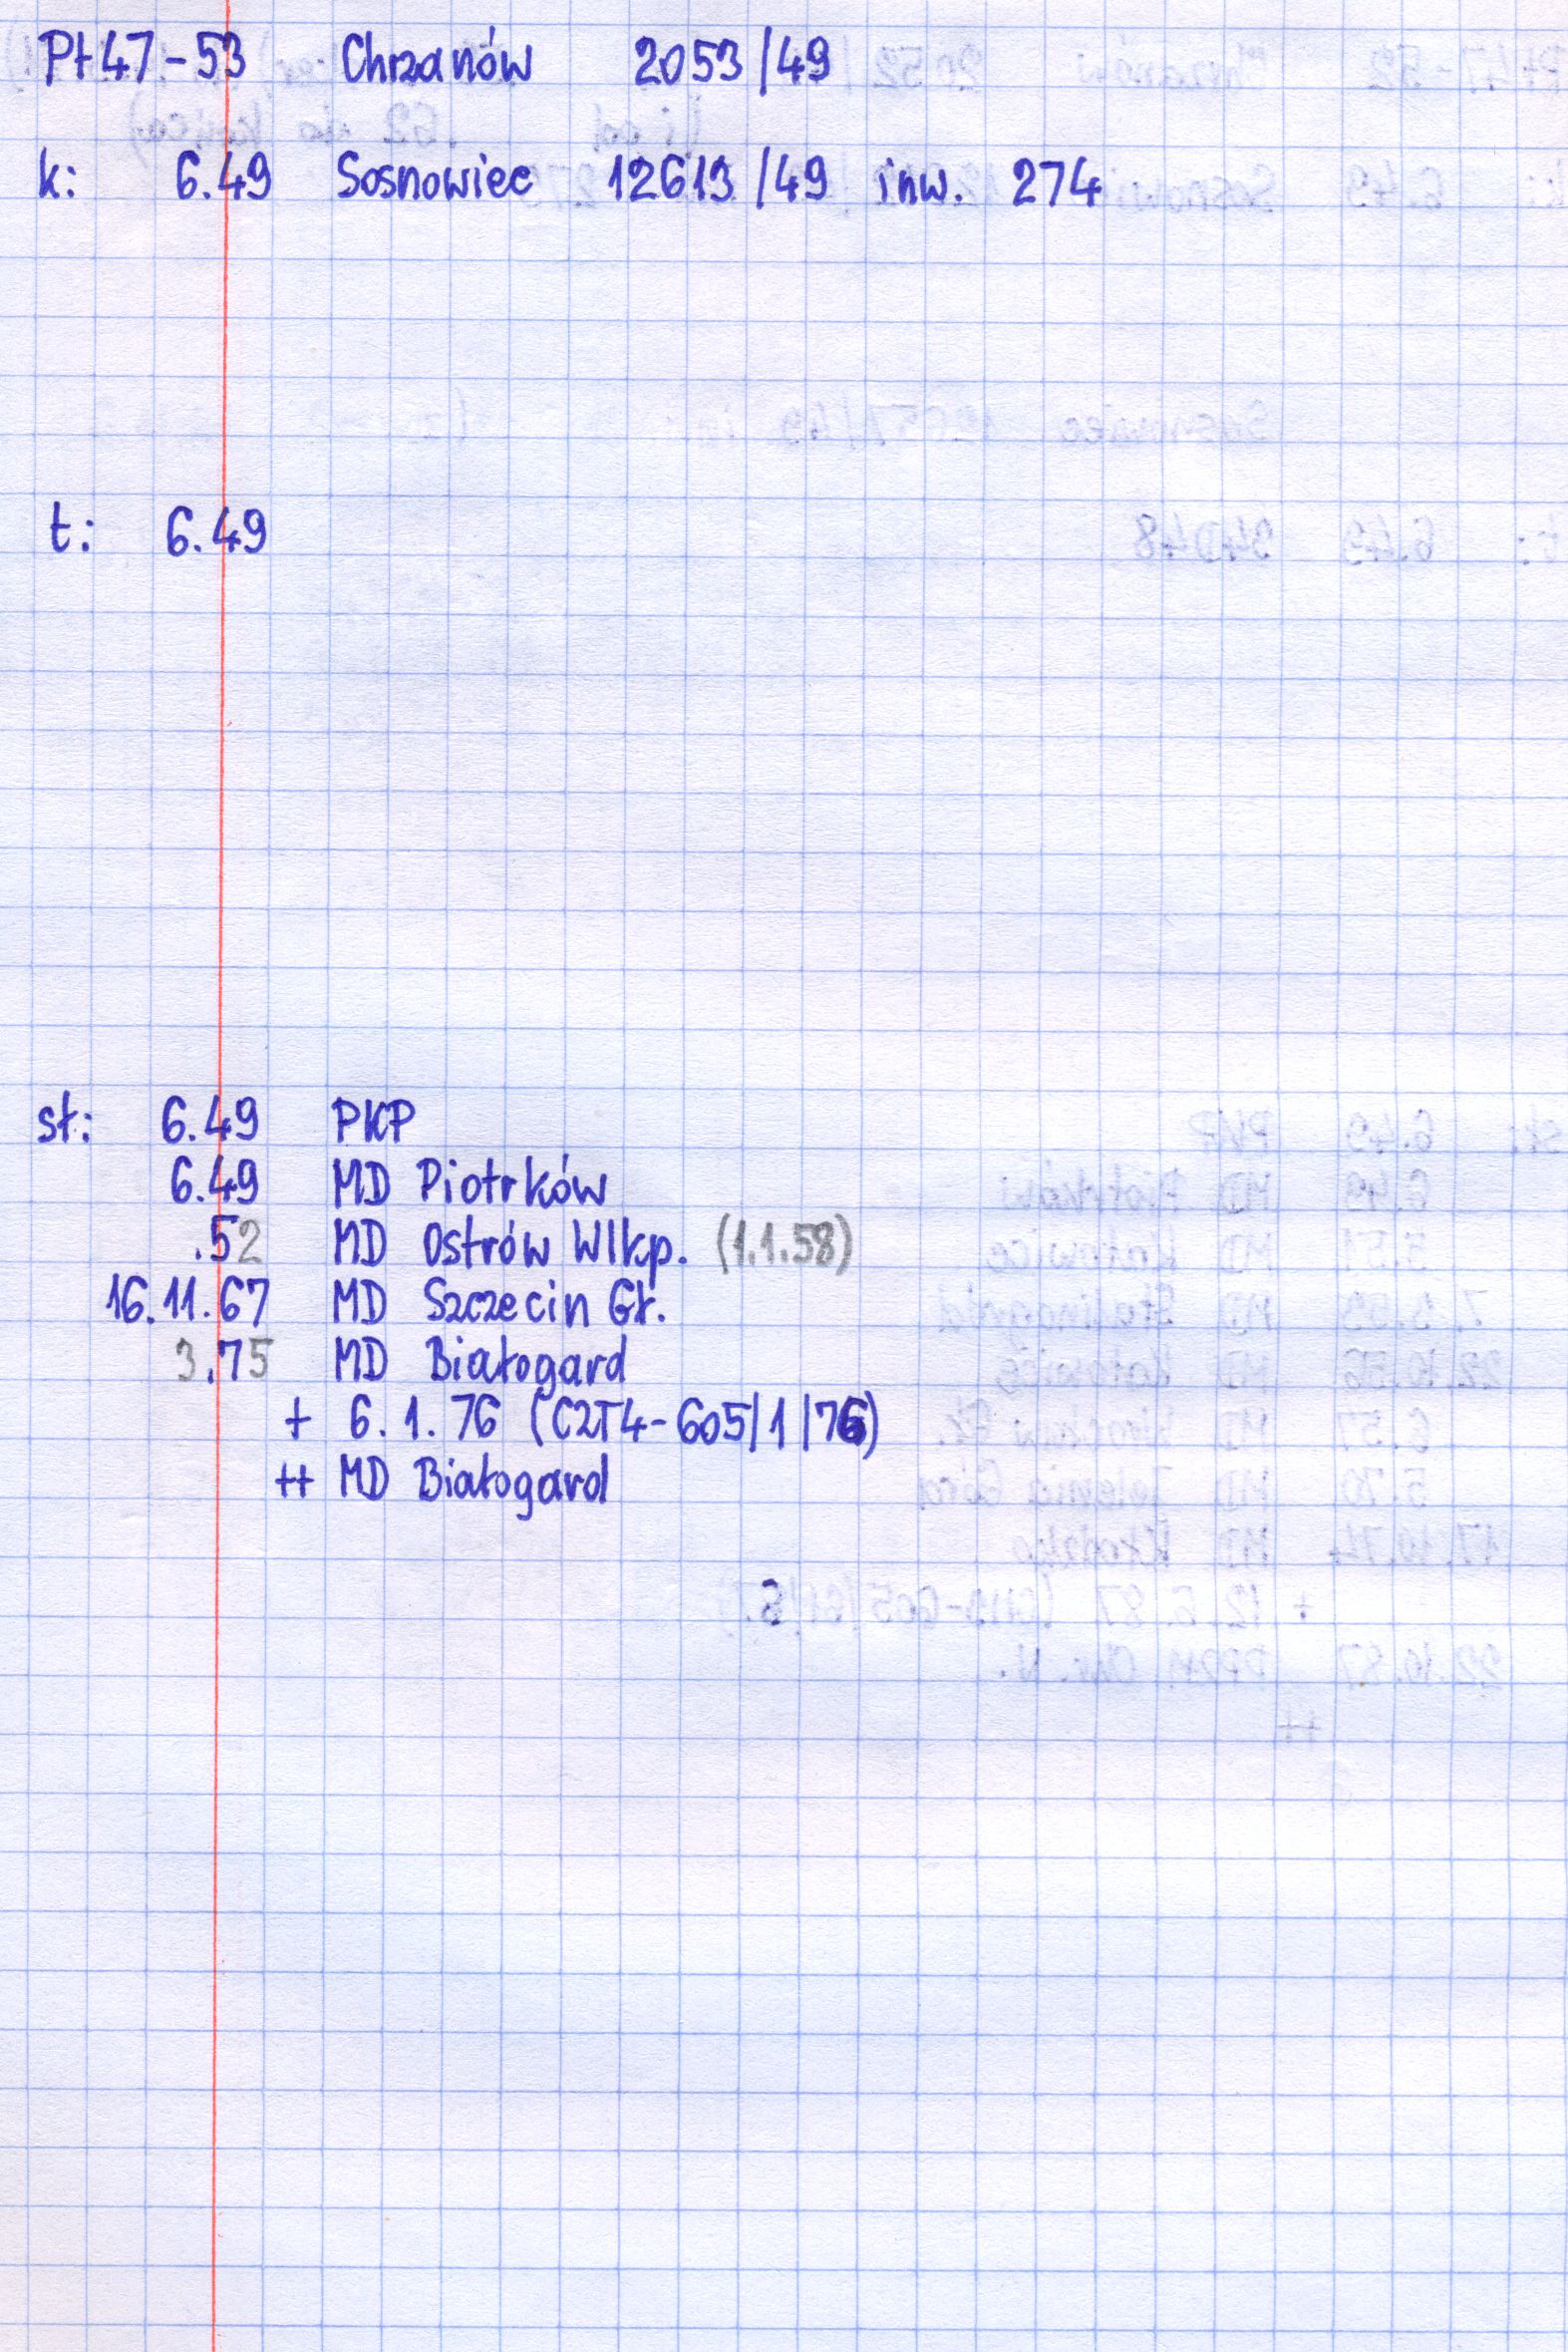 Pt47-53 Chrzanów 2053/49
k: 6.49 Sosnowiec 12613/49 inw. 274
t: 6.49
sł: 6.49 PKP
6.49 MD Piotrków
.52 MD Ostrów Wlkp. (1.1.58)
16.11.67 MD Szczecin Gł.
3.75 MD Białogard
+ 6.1.76 (CZT4-605/1/76)
++ MD Białogard